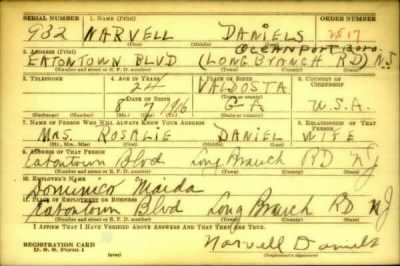 SERIAL NUMBER 1. NAME (Print) ORDER NUMBER
932 NARVELL DANIELS 2517
(First) (Middle) (Last)
OCEANPORT Boro.
2. ADDRESS (Print)
EATONTOWN BLVD (LONG BRANCH RD) N.J
(Number and street or R. F. D. number) (Town) (County) (State)
3. TELEPHONE 4. AGE IN YEARS 5. PLACE OF BIRTH 6. COUNTRY OF CITIZENSHIP
24 VALDOSTA
DATE OF BIRTH (Town or county)
8 7 1916 GA U.S.A.
(Exchange) (Number) (Mo.) (Day) (Yr.) (State or country)
7. NAME OF PERSON WHO WILL ALWAYS KNOW YOUR ADDRESS 8. RELATIONSHIP OF THAT PERSON
MRS. ROSALIE DANIEL WIFE
(Mr., Mrs., Miss) (First) (Middle) (Last)
9. ADDRESS OF THAT PERSON
Eatontown Blvd Long Branch RD NJ
(Number and street or R. F. D. number) (Town) (County) (State)
10. EMPLOYER'S NAME
Dominico Maida
11. PLACE OF EMPLOYMENT OR BUSINESS
Eatontown Blvd Long Branch RD NJ
(Number and street or R. F. D. number) (Town) (County) (State)
I AFFIRM THAT I HAVE VERIFIED ABOVE ANSWERS AND THAT THEY ARE TRUE.
REGISTRATION CARD
D. S. S. Form 1 Narvell Daniels
(Registrant's signature)